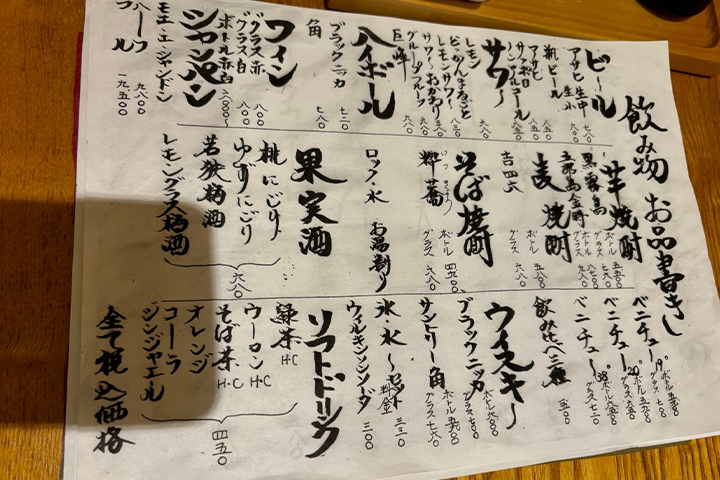 飲み物 お品書き
ビール
アサヒ 生中 七八〇
生小
瓶ビール
アサヒ 八五〇
サッポロ 八五〇
ノンアルコール
サワー
レモン 六八〇
レモンサワー 八三〇
サワーおかわり 三八〇
グレープフルーツ 六八〇
巨峰 六八〇
ハイボール
ブラックニッカ 七三〇
角 七八〇
ワイン
グラス赤 八〇〇
グラス白 八〇〇
ボトル赤白
シャンパン
モエ・エ・シャンドン
ハーフ 九八〇〇
フル 一九五〇〇
芋焼酎
黒霧島 ボトル グラス
五郎 ボトル グラス
麦焼酎
吉四六 ボトル グラス 六八〇
そば焼酎
粋蕎 ボトル 四九〇〇 グラス 六八〇
ロック・水 お湯割り
果実酒
桃にごり
ゆずにごり
若狭梅酒
レモングラス梅酒
六八〇
ベニチュー 19° ボトル グラス
ベニチュー 20° ボトル グラス 六五〇
ベニチュー 38° ボトル グラス
飲み比べ三種
ウイスキー
ブラックニッカ ボトル グラス
サントリー角 ボトル グラス
氷水〜セット料金 三三〇
ウィルキンソンソーダ 三〇〇
ソフトドリンク
緑茶 H・C
ウーロン H・C
そば茶 H・C
オレンジ
コーラ
ジンジャエール
四五〇
全て税込価格